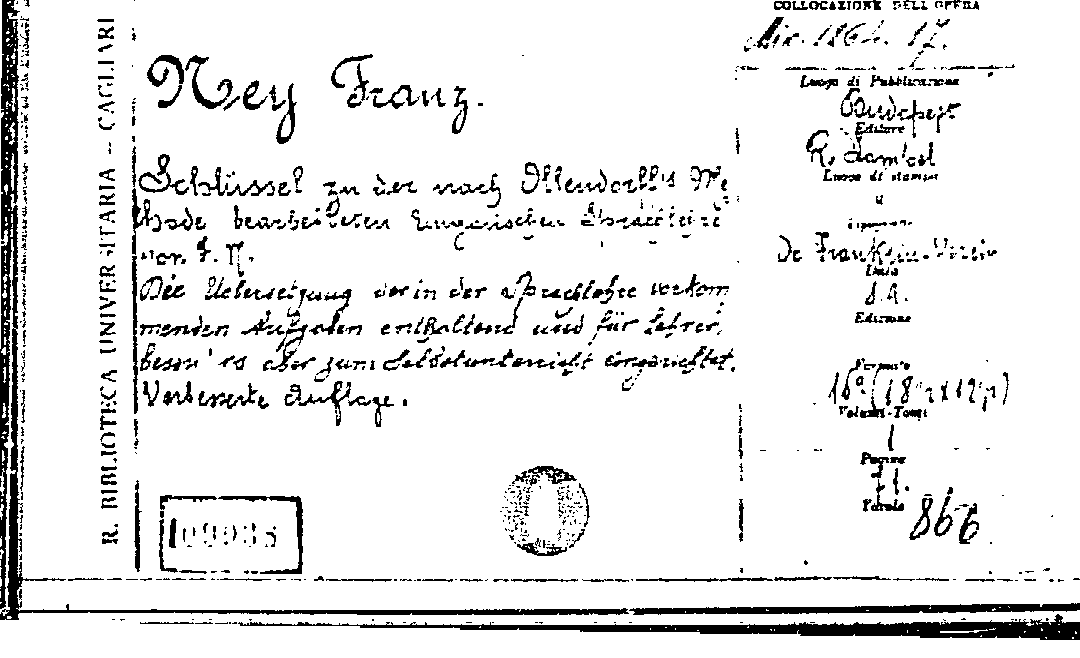 R. BIBLIOTECA UNIVERSITARIA – CAGLIARI
Ney Franz.
Schlüssel zu der nach Ollendorff's Me
thode bearbeiteten ungarischen Sprachlehre
von F. N.
Die Uebersetzung der in der Sprachlehre vorkom
menden Aufgaben enthaltend und für Lehrer,
aber zum Selbstunterricht eingerichtet.
Verbesserte Auflage.
COLLOCAZIONE DELL'OPERA
Misc. 1864. 17.
Luogo di Pubblicazione
Budapest
Editore
R. Lampel
Luogo di stampa
Franklin-Verein
Data
s.a.
Edizione
Formato
16º
Volumi-Tomi
1
Pagine
71.
Tavole
866